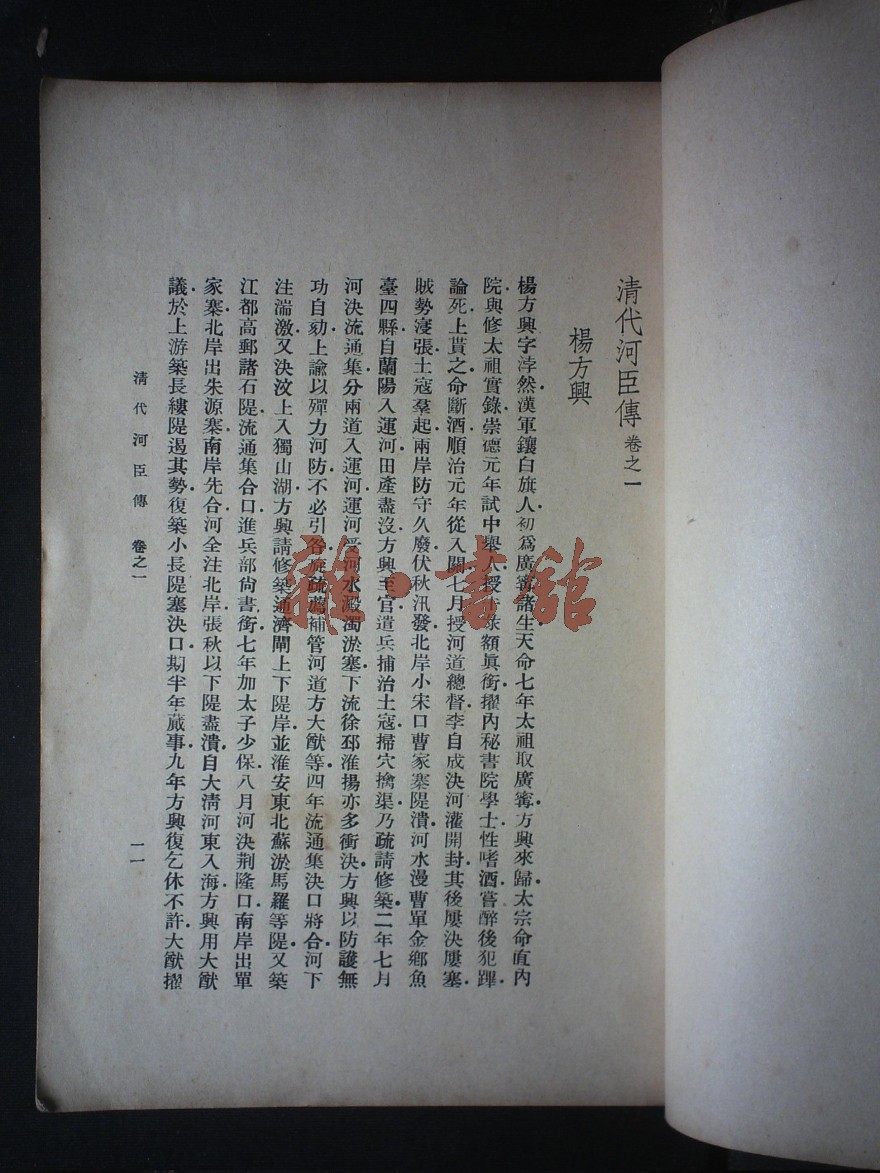 清代河臣傳 卷之一
楊方興
楊方興字浡然漢軍鑲白旗人初爲廣寗諸生天命七年太祖取廣寗方興來歸太宗命直內
院與修太祖實錄崇德元年試中舉人授牛錄額眞銜擢內秘書院學士性嗜酒嘗醉後犯蹕
論死上貰之命斷酒順治元年從入關七月授河道總督李自成決河灌開封其後屢決屢塞
賊勢寖張土寇羣起兩岸防守久廢伏秋汛發北岸小宋口曹家寨隄潰河水漫曹單金鄉魚
臺四縣自蘭陽入運河田產盡沒方興至官遣兵捕治土寇掃穴擒渠乃疏請修築二年七月
河決流通集分兩道入運河運河受河水澱濁淤塞下流徐邳淮揚亦多衝決方興以防護無
功自劾上諭以殫力河防不必引咎旋疏薦補管河道方大猷等四年流通集決口將合河下
注湍激又決汶上入獨山湖方興請修築通濟閘上下隄岸並淮安東北蘇淤馬羅等隄又築
江都高郵諸石隄流通集合口進兵部尙書銜七年加太子少保八月河決荆隆口南岸出單
家寨北岸出朱源寨南岸先合河全注北岸張秋以下隄盡潰自大淸河東入海方興用大猷
議於上游築長縷隄遏其勢復築小長隄塞決口期半年蕆事九年方興復乞休不許大猷擢
清代河臣傳 卷之一
一一
雜·書館